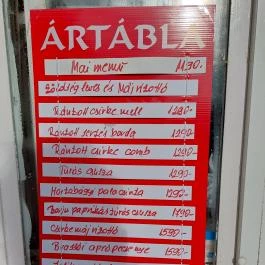 ÁRTÁBLA
Mai menü 1130.-
Zöldség leves és Májrizottó
Rántott csirke mell 1290.-
Rántott sertés borda 1290.-
Rántott csirke comb 1290.-
Túrós csusza 1290.-
Hortobágyi palacsinta 1290.-
paprikás túrós csusza 1790.-
Csirkemáj rizottó 1590.-
Brassói aprópecsenye 1590.-